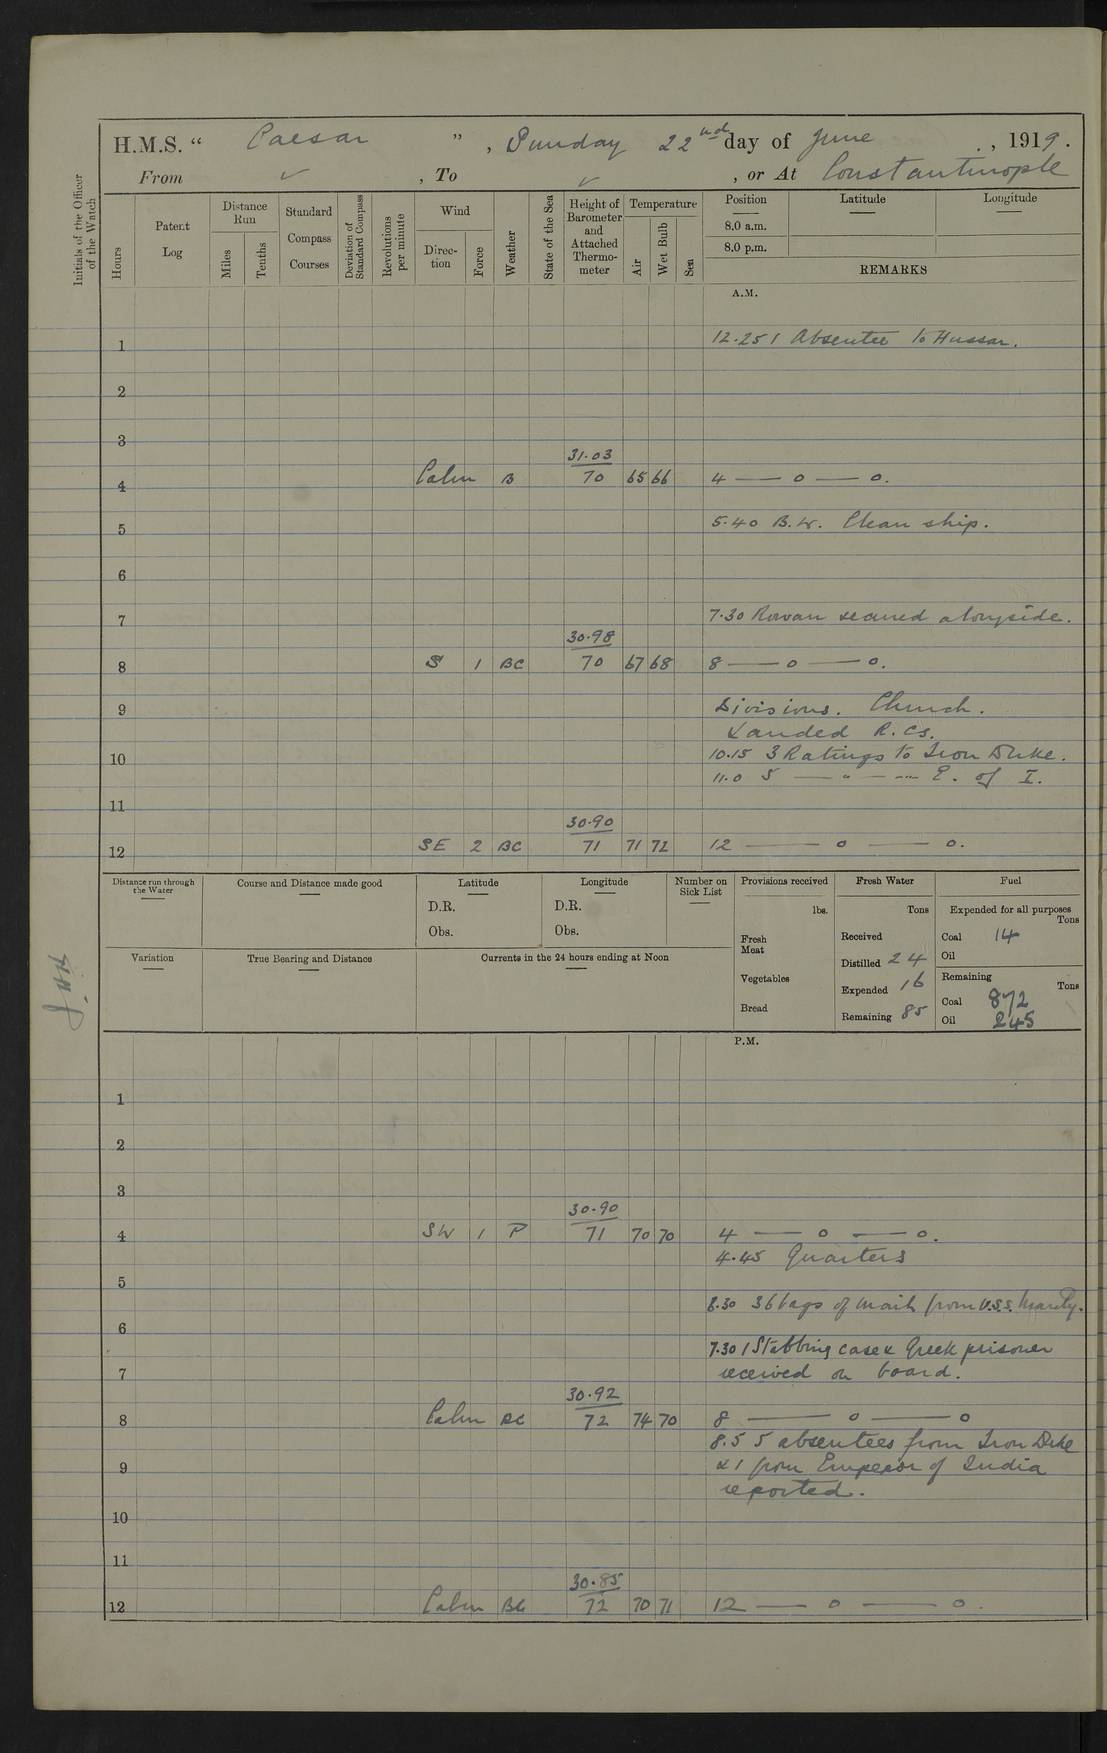 H.M.S. “ Caesar ” , Sunday 22nd day of June , 1919.
From ✓ , To ✓ , or At Constantinople
Initials of the Officer of the Watch
Hours
Patent Log
Distance Run
Miles
Tenths
Standard Compass Courses
Deviation of Standard Compass
Revolutions per minute
Wind
Direction
Force
Weather
State of the Sea
Height of Barometer and Attached Thermometer
Temperature
Air
Wet Bulb
Sea
Position
8.0 a.m.
8.0 p.m.
Latitude
Longitude
REMARKS
A.M.
1 12.25 1 Absentee to Hussar.
2
3
31.03
4 Calm B 70 65 66 4 — o — o.
5 5.40 B.W. Clean ship.
6
7 7.30 Rowan secured alongside.
30.98
8 S 1 BC 70 67 68 8 — o — o.
9 Divisions. Church.
Landed R.Cs.
10 10.15 3 Ratings to Iron Duke.
11.0 5 — " — — " E. of I.
11
30.90
12 SE 2 BC 71 71 72 12 — o — o.
Distance run through the Water
Course and Distance made good
Latitude
D.R.
Obs.
Longitude
D.R.
Obs.
Number on Sick List
Provisions received
lbs.
Fresh Meat
Vegetables
Bread
Fresh Water
Tons
Received
Distilled 24
Expended 16
Remaining 85
Fuel
Expended for all purposes
Tons
Coal 14
Oil
Remaining
Tons
Coal 872
Oil 245
Variation
True Bearing and Distance
Currents in the 24 hours ending at Noon
P.M.
1
2
3
30.90
4 SW 1 P 71 70 70 4 — o — o.
4.45 Quarters
5
36 bags of mail from U.S.S.
6
7.30 1 Stabbing case & Greek prisoner
7 received on board.
30.92
8 Calm BC 72 74 70 8 — o — o
8.5 5 absentees from Iron Duke
9 & 1 from Emperor of India
reported.
10
11
30.85
12 Calm BC 72 70 71 12 — o — o.